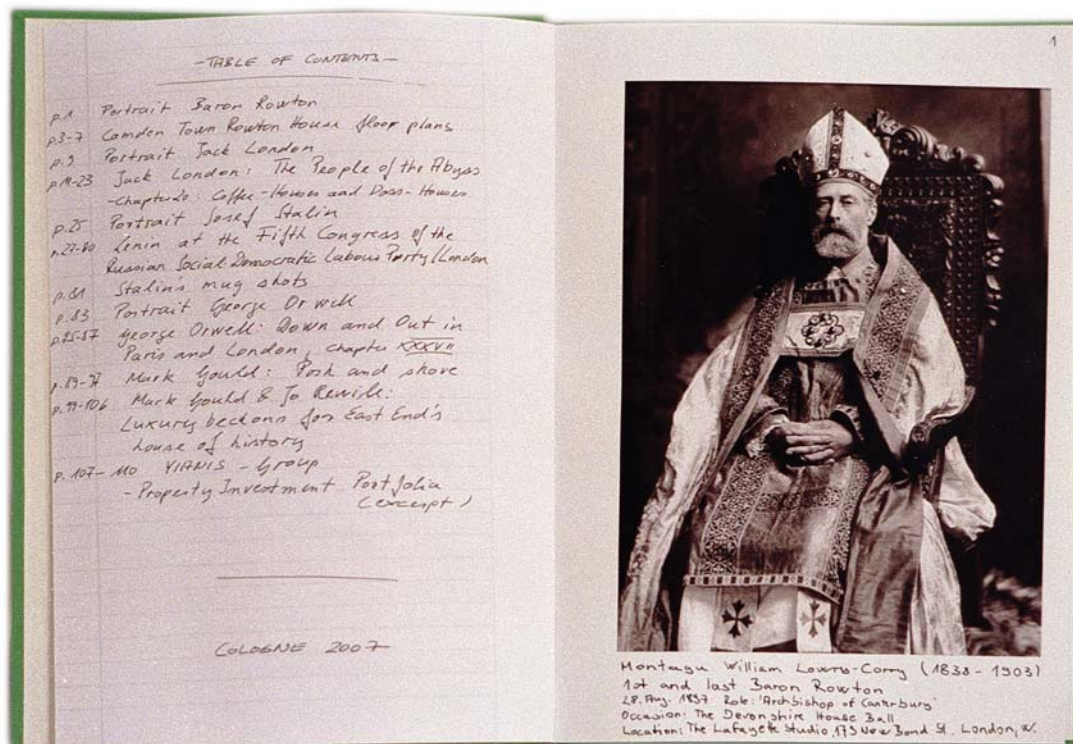 - TABLE OF CONTENTS -
p.1 Portrait Baron Rowton
p.3-7 Camden Town Rowton House floor plans
p.9 Portrait Jack London
p.11-23 Jack London: The People of the Abyss
- Chapter 20: Coffee-Houses and Doss-Houses
p.25 Portrait Josef Stalin
p.27-80 Lenin at the Fifth Congress of the
Russian Social-Democratic Labour Party/London
p.81 Stalins mug shots
p.83 Portrait George Orwell
p.85-87 George Orwell: Down and Out in
Paris and London, chapter XXXVII
p.89-97 Mark Gould: Posh and shove
p.99-106 Mark Gould & Jo Revill:
Luxury beckons for East End's
house of history
p.107-110 VIANIS - Group
- Property Investment Portfolio
(excerpt)
COLOGNE 2007
1
Montagu William Lowry-Corry (1838-1903)
1st and last Baron Rowton
28. Aug. 1897 Role: 'Archbishop of Canterbury'
Occasion: The Devonshire House Ball
Location: The Lafayette Studio, 179 New Bond St. London, W.